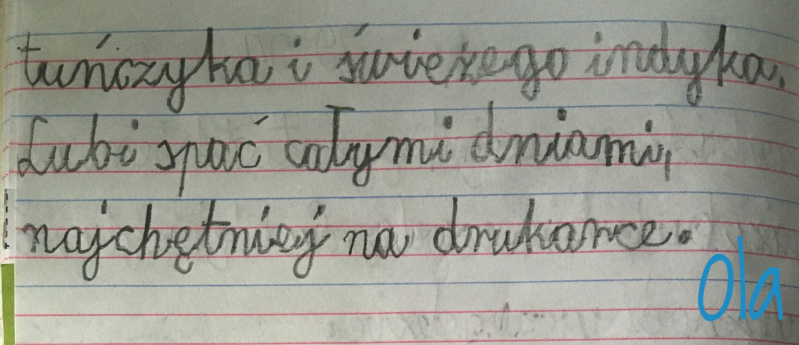 tuńczyka i świeżego indyka.
Lubi spać całymi dniami,
najchętniej na drukarce.
Ola